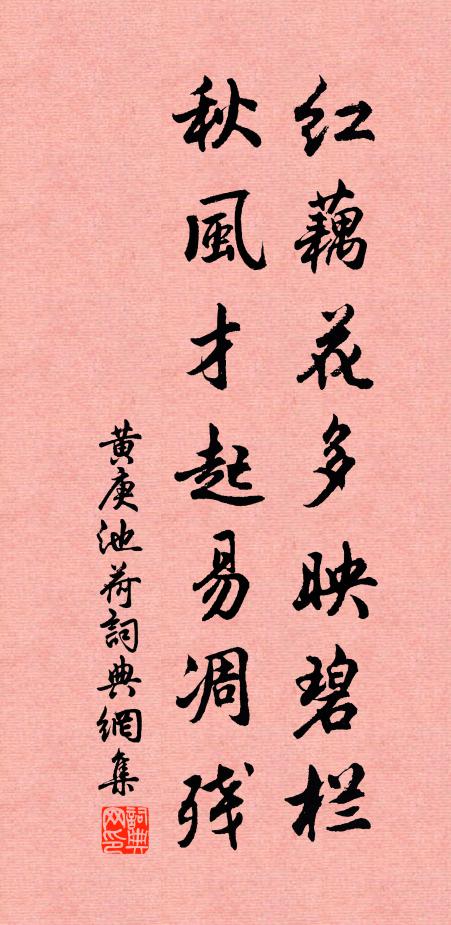 红藕花多映碧栏
秋風才起易凋残
黄庚池荷詞典網集
詞典网印